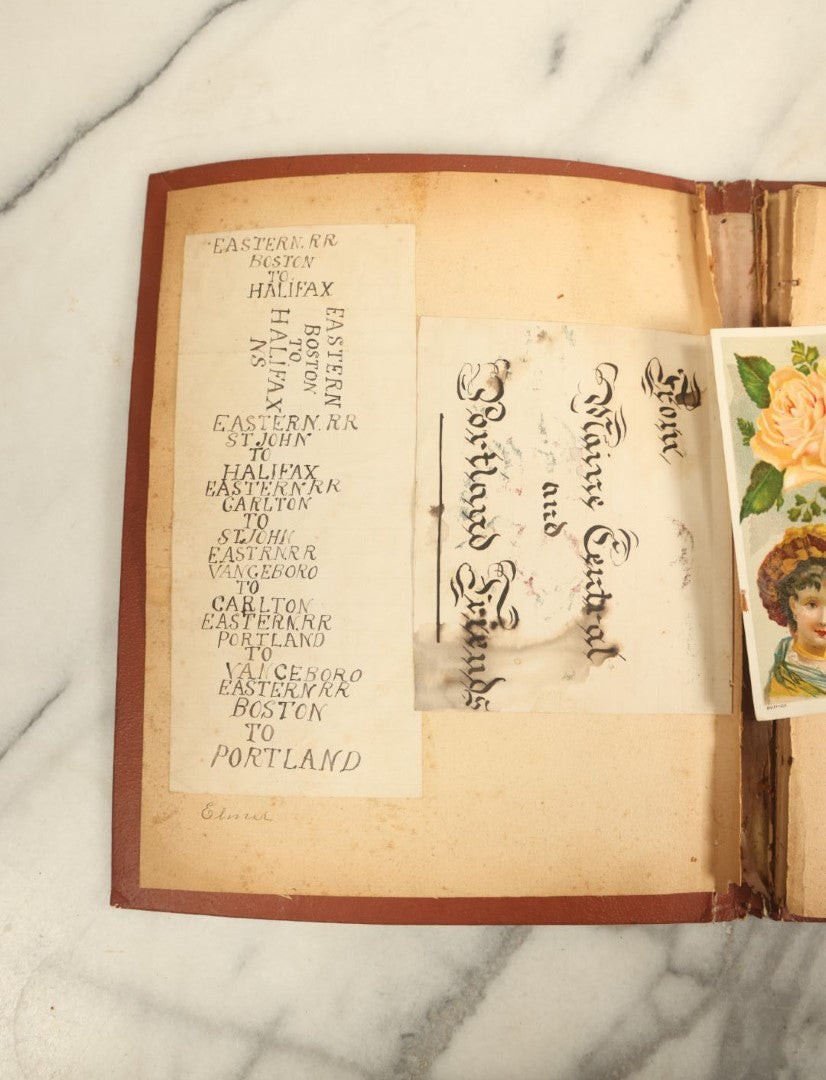 EASTERN. RR
BOSTON
TO
HALIFAX
EASTERN
BOSTON
TO
HALIFAX
NS
EASTERN. RR
ST. JOHN
TO
HALIFAX
EASTERN RR
CARLTON
TO
ST. JOHN
EASTRN. RR
VANGEBORO
TO
CARLTON
EASTERN. RR
PORTLAND
TO
VANCEBORO
EASTERN RR
BOSTON
TO
PORTLAND
Elmer
From,
Maine Central
and
Portland Friends